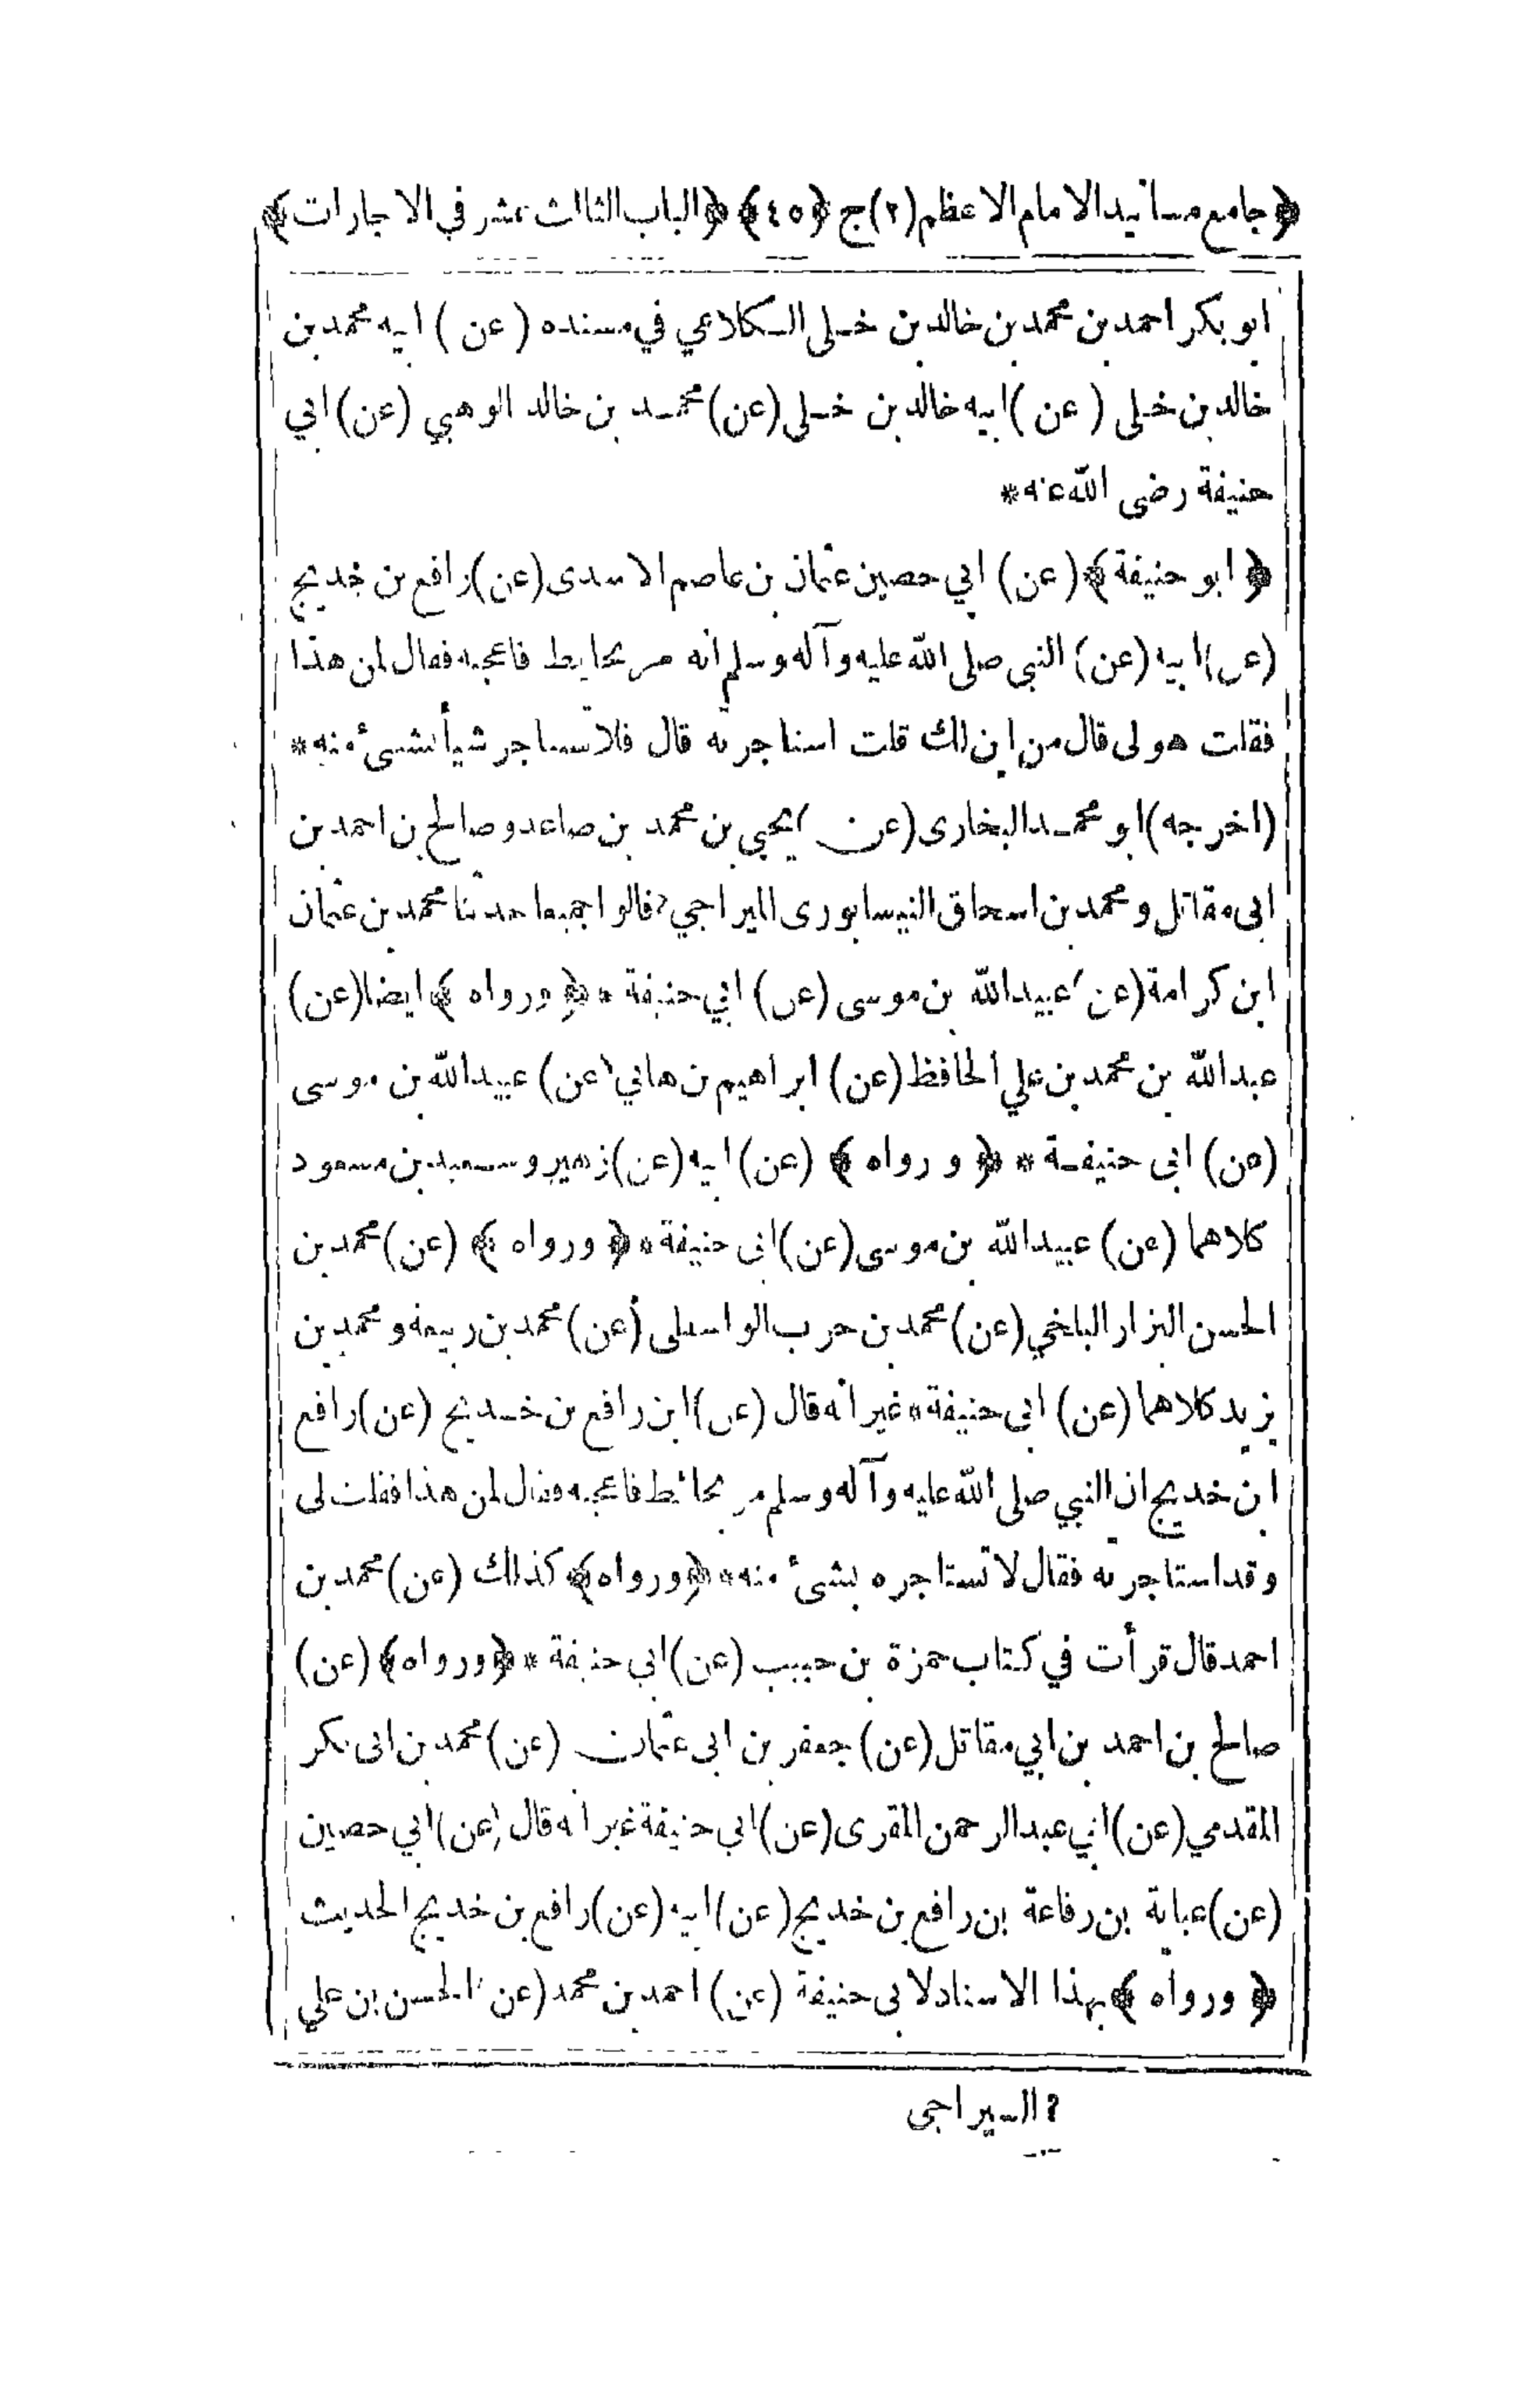 ﴿جامع مسانيد الامام الاعظم (٢) ج ﴿٤٥﴾ ﴿الباب الثالث عشر في الاجارات﴾
ابو بكر احمد بن محمد بن خالد بن خلي الكلاعي في مسنده (عن) ابيه محمد بن
خالد بن خلي (عن) ابيه خالد بن خلي (عن) محمد بن خالد الوهبي (عن) ابي
حنيفة رضى الله عنه *
﴿ابو حنيفة﴾ (عن) ابي حصين عثمان بن عاصم الاسدى (عن) رافع بن خديج
(عن) ابيه (عن) النبي صلى الله عليه وآله وسلم انه مر بحايط فاعجبه فقال لمن هذا
فقلت هو لى قال من اين لك قلت استاجرته قال فلا تستاجر شيأ بشئ منه *
(اخرجه) ابو محمد البخارى (عن) يحيى بن محمد بن صاعد وصالح بن احمد بن
ابى مقاتل ومحمد بن اسحاق النيسابورى البراجي ? قالوا جميعا حدثنا محمد بن عثمان
ابن كرامة (عن) عبيد الله بن موسى (عن) ابي حنيفة * ﴿ورواه﴾ ايضا (عن)
عبد الله بن محمد بن علي الحافظ (عن) ابراهيم بن هاني (عن) عبيد الله بن موسى
(عن) ابى حنيفة * ﴿ورواه﴾ (عن) ابيه (عن) زهير وسعيد بن مسعود
كلاهما (عن) عبيد الله بن موسى (عن) ابى حنيفة * ﴿ورواه﴾ (عن) محمد بن
الحسن البزار البلخي (عن) محمد بن حرب الواسطى (عن) محمد بن ربيعة ومحمد بن
يزيد كلاهما (عن) ابى حنيفة * غير انه قال (عن) ابن رافع بن خديج (عن) رافع
ابن خديج ان النبي صلى الله عليه وآله وسلم مر بحائط فاعجبه فقال لمن هذا فقلت لى
وقد استاجرته فقال لا تستاجره بشئ منه * ﴿ورواه﴾ كذلك (عن) محمد بن
احمد قال قرأت في كتاب حمزة بن حبيب (عن) ابي حنيفة * ﴿ورواه﴾ (عن)
صالح بن احمد بن ابي مقاتل (عن) جعفر بن ابى عثمان (عن) محمد بن ابى بكر
المقدمي (عن) ابي عبد الرحمن المقرى (عن) ابي حنيفة غير انه قال (عن) ابي حصين
(عن) عباية بن رفاعة بن رافع بن خديج (عن) ابيه (عن) رافع بن خديج الحديث
﴿ورواه﴾ بهذا الاسناد لابى حنيفة (عن) احمد بن محمد (عن) الحسن بن علي
? السيراجى